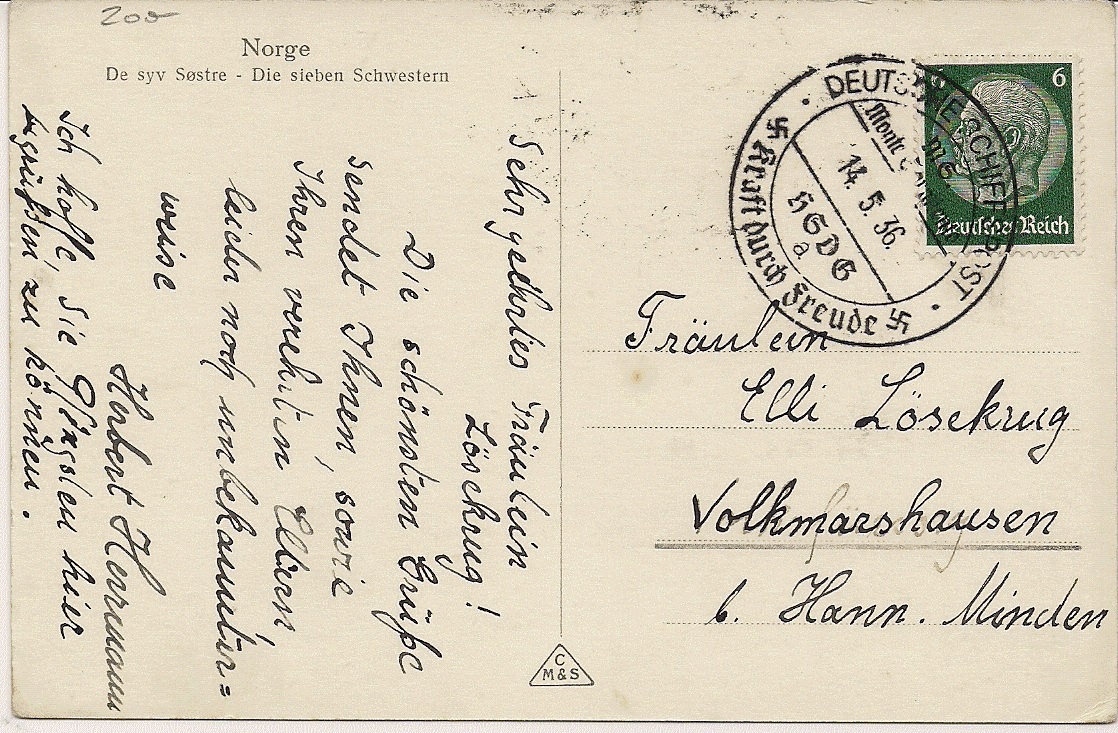 200
Norge
De syv Søstre - Die sieben Schwestern
Sehr geehrtes Fräulein
Lösekrug!
Die schönsten Grüße
sendet Ihnen, sowie
Ihren verehrten Eltern,
leider noch unbekannter=
weise
Herbert Herrmann
Ich hoffe, Sie Pfingsten hier
begrüßen zu können.
C
M&S
DEUTSCHE SCHIFFSPOST
Monte
14.5.36.
HSDG
a
Kraft durch Freude
6
Deutsches Reich
Fräulein
Elli Lösekrug
Volkmarshausen
b. Hann. Minden